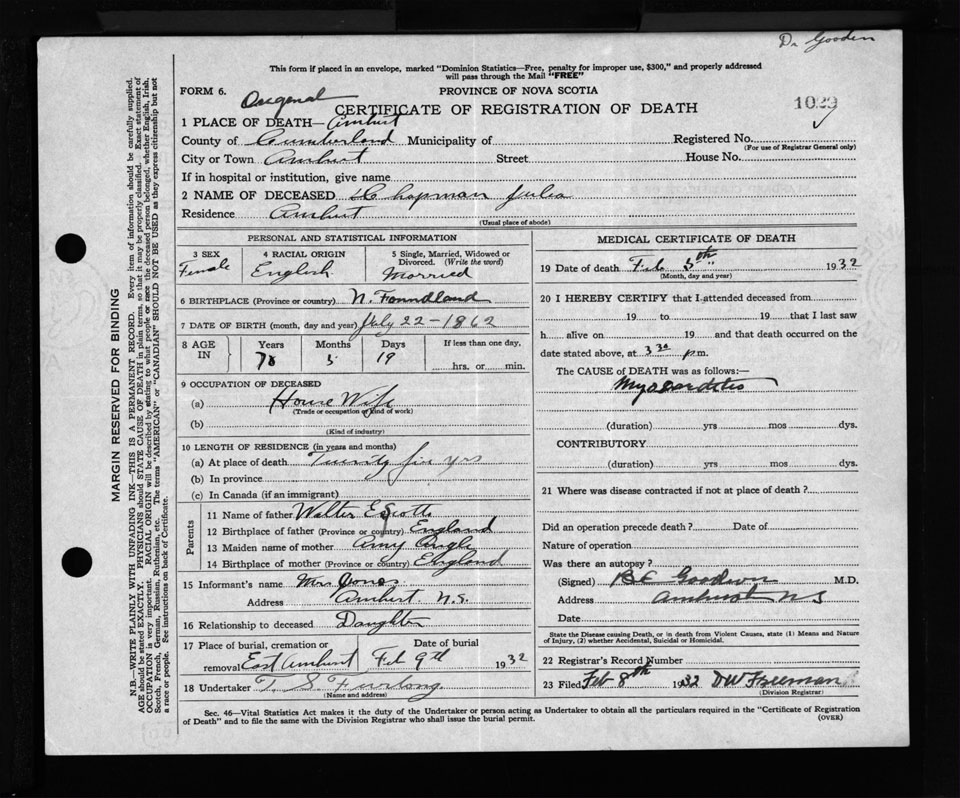 Dr Gooden
This form if placed in an envelope, marked "Dominion Statistics—Free, penalty for improper use, $300," and properly addressed
will pass through the Mail "FREE"
FORM 6. PROVINCE OF NOVA SCOTIA
Original CERTIFICATE OF REGISTRATION OF DEATH 1029
1 PLACE OF DEATH— Amherst
County of Cumberland Municipality of Registered No.
(For use of Registrar General only)
City or Town Amherst Street House No.
If in hospital or institution, give name
2 NAME OF DECEASED Chapman Julia
Residence Amherst
(Usual place of abode)
PERSONAL AND STATISTICAL INFORMATION
3 SEX 4 RACIAL ORIGIN 5 Single, Married, Widowed or
Divorced. (Write the word)
Female English Married
6 BIRTHPLACE (Province or country) N. Foundland
7 DATE OF BIRTH (month, day and year) July 22-1862
8 AGE IN Years Months Days If less than one day,
5 19 hrs. or min.
9 OCCUPATION OF DECEASED
(a) House Wife
(Trade or occupation or kind of work)
(b)
(Kind of industry)
10 LENGTH OF RESIDENCE (in years and months)
(a) At place of death Twenty five yrs
(b) In province
(c) In Canada (if an immigrant)
Parents
11 Name of father Walter Escott
12 Birthplace of father (Province or country) England
13 Maiden name of mother Amy
14 Birthplace of mother (Province or country) England
15 Informant's name Mrs Jones
Address Amherst N.S.
16 Relationship to deceased Daughter
17 Place of burial, cremation or Date of burial
removal East Amherst Feb 9th 1932
18 Undertaker T. S. Furlong
(Name and address)
MEDICAL CERTIFICATE OF DEATH
19 Date of death Feb 5th 1932
(Month, day and year)
20 I HEREBY CERTIFY that I attended deceased from
19 to 19 that I last saw
h alive on 19 and that death occurred on the
date stated above, at 3 30 p.m.
The CAUSE OF DEATH was as follows:—
Myocarditis
(duration) yrs mos dys.
CONTRIBUTORY
(duration) yrs mos dys.
21 Where was disease contracted if not at place of death?
Did an operation precede death? Date of
Nature of operation
Was there an autopsy?
(Signed) B E Goodwin M.D.
Address Amherst N S
Date
State the Disease causing Death, or in death from Violent Causes, state (1) Means and Nature
of Injury, (2) whether Accidental, Suicidal or Homicidal.
22 Registrar's Record Number
23 Filed Feb 8th 1932 D W Freeman
(Division Registrar)
Sec. 46—Vital Statistics Act makes it the duty of the Undertaker or person acting as Undertaker to obtain all the particulars required in the "Certificate of Registration
of Death" and to file the same with the Division Registrar who shall issue the burial permit. (OVER)
MARGIN RESERVED FOR BINDING
N.B.—WRITE PLAINLY WITH UNFADING INK—THIS IS A PERMANENT RECORD. Every item of information should be carefully supplied.
AGE should be stated EXACTLY. PHYSICIANS should STATE CAUSE OF DEATH in plain terms, so that it may be properly classified. Exact statement of
OCCUPATION is very important. RACIAL ORIGIN will be described by stating to what people or race the deceased person belonged, whether English, Irish,
Scotch, French, German, Russian, Ruthenian, etc. The terms "AMERICAN" or "CANADIAN" SHOULD NOT BE USED as they express citizenship but not
a race or people. See instructions on back of Certificate.